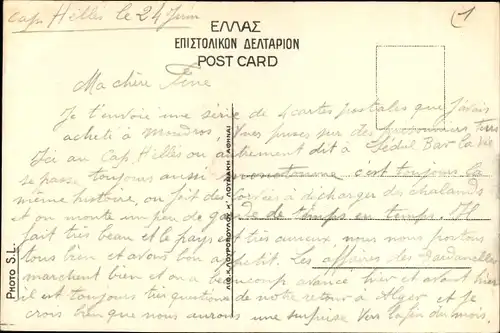 Cap Hellès le 24 Juin
1
ΕΛΛΑΣ
ΕΠΙΣΤΟΛΙΚΟΝ ΔΕΛΤΑΡΙΟΝ
POST CARD
Ma chère
Je t'envoie une série de 4 cartes postales que j'avais
acheté à Moudros, Vues prises sur des prisonniers turcs
Ici au Cap Hellès ou autrement dit à Seddul Bar la vie
se passe toujours aussi monotonne c'est toujours la
même histoire, on fait des corvées à décharger des chalands
et on monte un peu de garde de temps en temps. Il
fait très beau et le pays est très curieux, nous nous portons
tous bien et avons bon appétit. Les affaires des Dardanelles
marchent bien et on a beaucoup avancé hier et avant hier
il est toujours très question de notre retour à Alger et je
crois bien que nous aurons une surprise Vers la fin du mois.
PHOTO S.L.